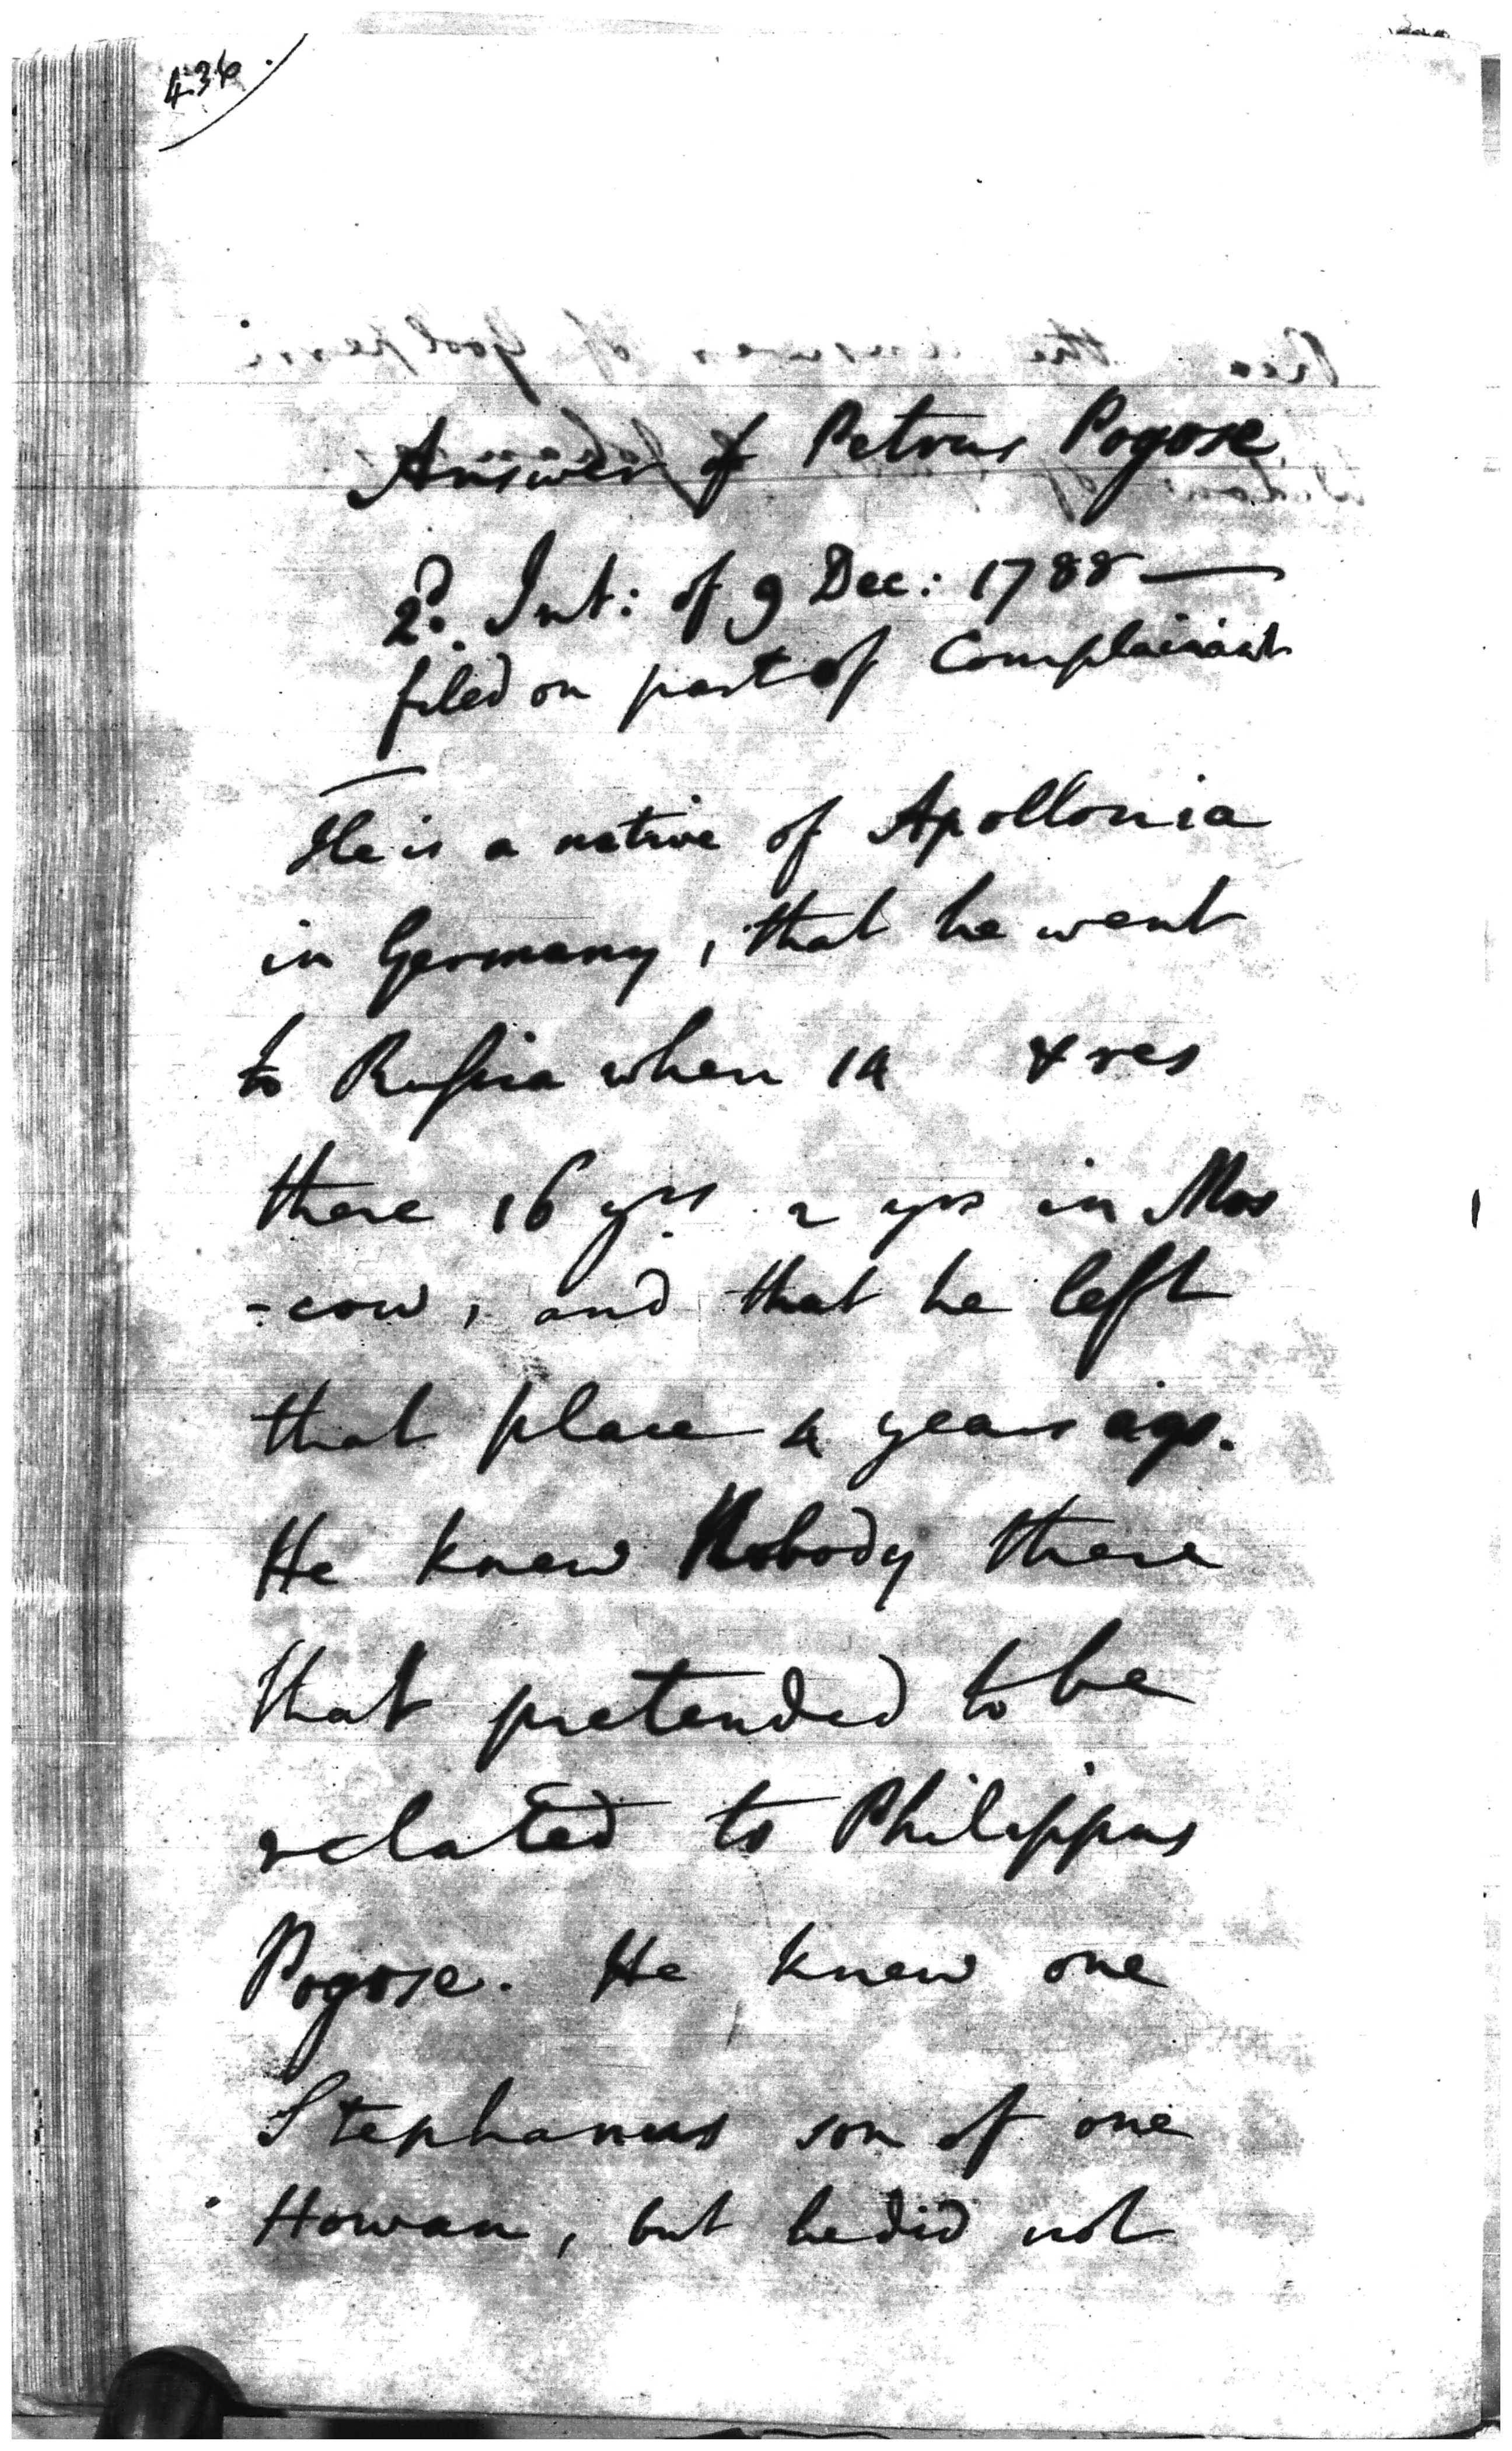 436.
Answer of Petrus Pogose
2d. Int: of 9 Dec: 1788 —
filed on part of Complainant
He is a native of Apollonia
in Germany, that he went
to Russia when 14 & res
there 16 yrs. 2 yrs in Mos
-cow, and that he left
that place 4 years ago.
He knew Nobody there
that pretended to be
related to Philippus
Pogose. He knew one
Stephanus son of one
Howan, but he did not